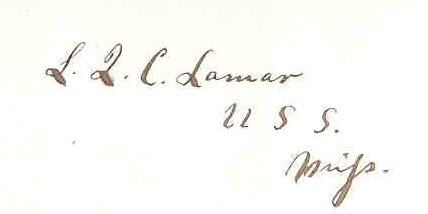 L. Q. C. Lamar
U S S.
Miss.